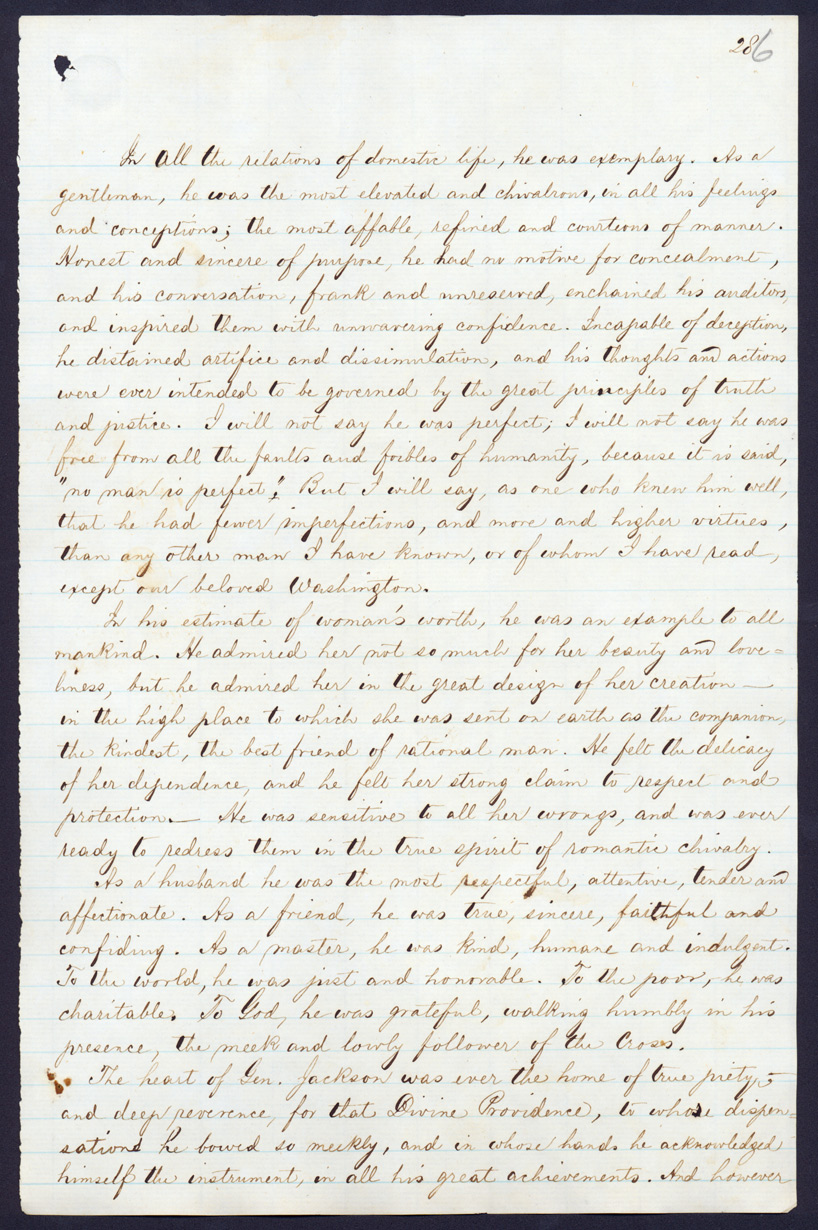 286
In all the relations of domestic life, he was exemplary. As a
gentleman, he was the most elevated and chivalrous, in all his feelings
and conceptions; the most affable, refined and courteous of manner.
Honest and sincere of purpose, he had no motive for concealment,
and his conversation, frank and unreserved, enchained his auditors,
and inspired them with unwavering confidence. Incapable of deception,
he distained artifice and dissimulation, and his thoughts and actions
were ever intended to be governed by the great principles of truth
and justice. I will not say he was perfect; I will not say he was
free from all the faults and foibles of humanity, because it is said,
"no man is perfect". But I will say, as one who knew him well,
that he had fewer imperfections, and more and higher virtues,
than any other man I have known, or of whom I have read,
except our beloved Washington.
In his estimate of woman's worth, he was an example to all
mankind. He admired her not so much for her beauty and love=
liness, but he admired her in the great design of her creation —
in the high place to which she was sent on earth as the companion,
the kindest, the best friend of rational man. He felt the delicacy
of her dependence, and he felt her strong claim to respect and
protection. — He was sensitive to all her wrongs, and was ever
ready to redress them in the true spirit of romantic chivalry.
As a husband he was the most respectful, attentive, tender and
affectionate. As a friend, he was true, sincere, faithful and
confiding. As a master, he was kind, humane and indulgent.
To the world, he was just and honorable. To the poor, he was
charitable. To God, he was grateful, walking humbly in his
presence, the meek and lowly follower of the Cross.
The heart of Gen. Jackson was ever the home of true piety,
and deep reverence, for that Divine Providence, to whose dispen=
sations he bowed so meekly, and in whose hands he acknowledged
himself the instrument, in all his great achievements. And however